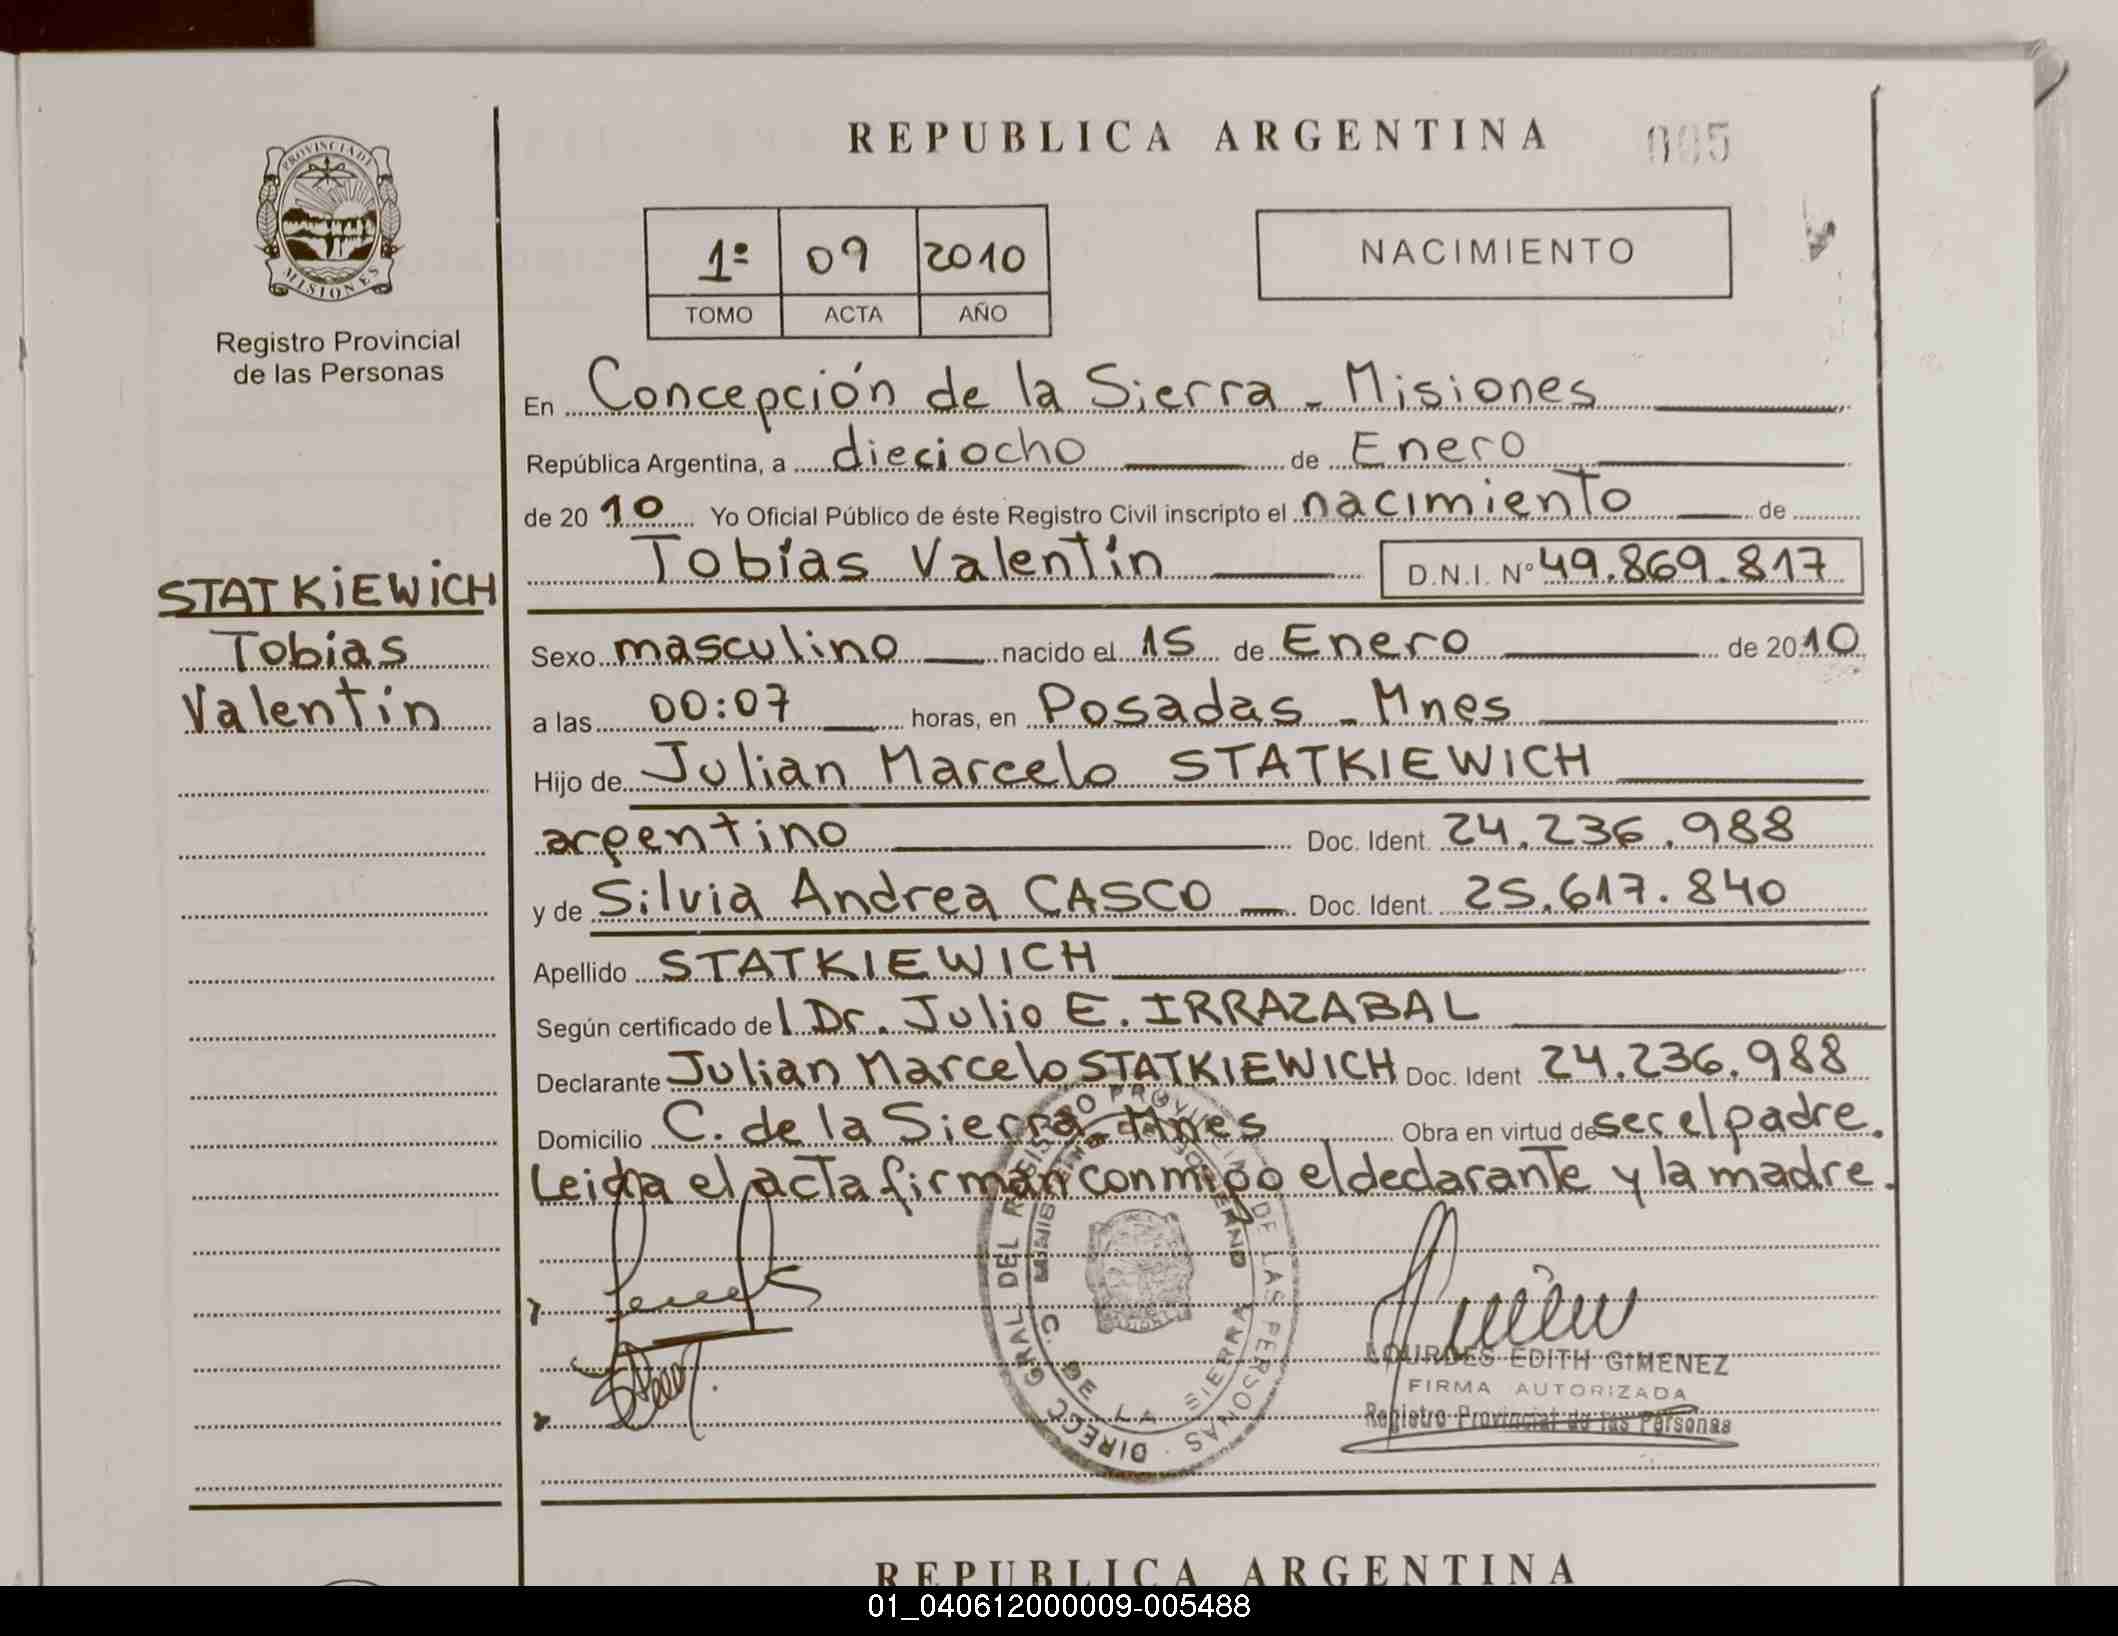 REPUBLICA ARGENTINA
005
PROVINCIA DE
MISIONES
Registro Provincial
de las Personas
1º 09 2010
TOMO ACTA AÑO
NACIMIENTO
En Concepción de la Sierra - Misiones
República Argentina, a dieciocho de Enero
de 20 10 Yo Oficial Público de éste Registro Civil inscripto el nacimiento de
Tobías Valentín D.N.I. Nº 49.869.817
STATKIEWICH
Tobías
Valentín
Sexo masculino nacido el 15 de Enero de 2010
a las 00:07 horas, en Posadas - Mnes
Hijo de Julian Marcelo STATKIEWICH
argentino Doc. Ident. 24.236.988
y de Silvia Andrea CASCO Doc. Ident. 25.617.840
Apellido STATKIEWICH
Según certificado del Dr. Julio E. IRRAZABAL
Declarante Julian Marcelo STATKIEWICH Doc. Ident 24.236.988
Domicilio C. de la Sierra - Mnes Obra en virtud de ser el padre.
Leida el acta firman conmigo el declarante y la madre.
DIRECC GRAL DEL REGISTRO PROVINCIAL DE LAS PERSONAS
C. DE LA SIERRA
LOURDES EDITH GIMENEZ
FIRMA AUTORIZADA
Registro Provincial de las Personas
REPUBLICA ARGENTINA
01_040612000009-005488